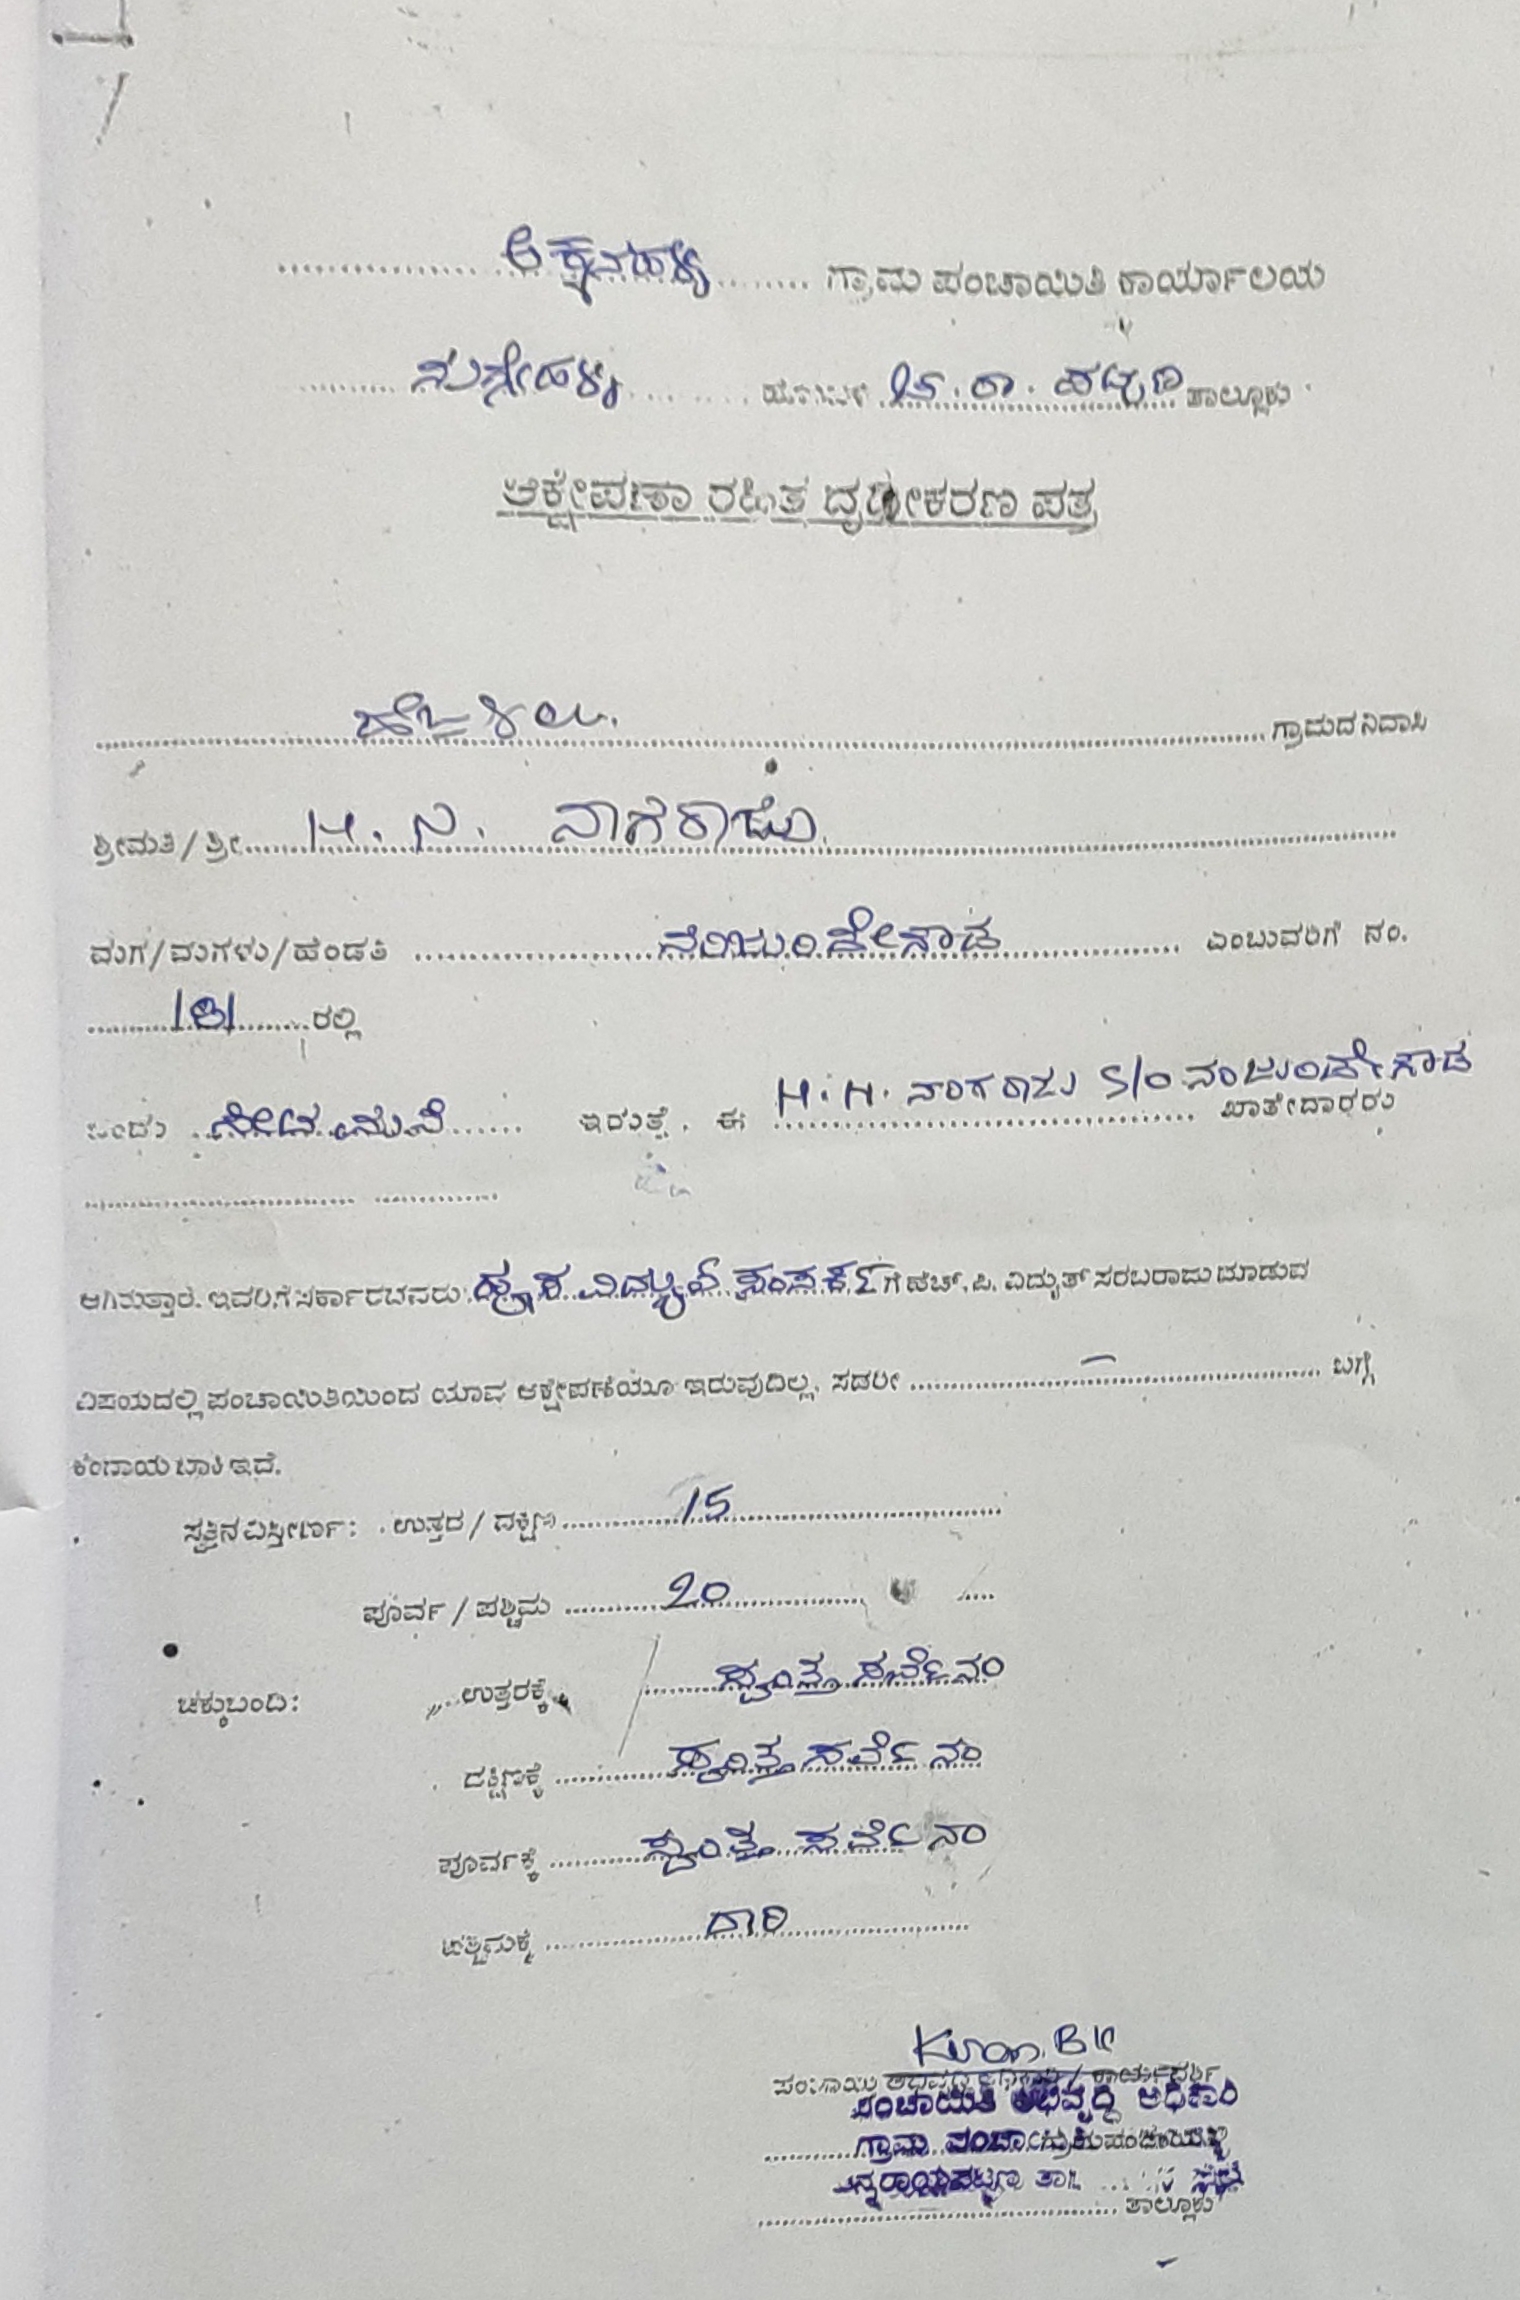 ಅಕ್ಕನಹಳ್ಳಿ ಗ್ರಾಮ ಪಂಚಾಯಿತಿ ಕಾರ್ಯಾಲಯ
ನುಗ್ಗೇಹಳ್ಳಿ ಹೋಬಳಿ ಚ. ರಾ. ಪಟ್ಟಣ ತಾಲ್ಲೂಕು
ಆಕ್ಷೇಪಣಾ ರಹಿತ ದೃಢೀಕರಣ ಪತ್ರ
ಗ್ರಾಮದ ನಿವಾಸಿ
ಶ್ರೀಮತಿ / ಶ್ರೀ H. N. ನಾಗರಾಜು
ಮಗ/ಮಗಳು/ಹೆಂಡತಿ ನಂಜುಂಡೇಗೌಡ ಎಂಬುವರಿಗೆ ನಂ.
181 ರಲ್ಲಿ
ಒಂದು ಮನೆ ಇರುತ್ತೆ. ಈ H. N. ನಾಗರಾಜು S/O ನಂಜುಂಡೇಗೌಡ ಖಾತೇದಾರರು
ಆಗಿರುತ್ತಾರೆ. ಇವರಿಗೆ ಸರ್ಕಾರದವರು ವಿದ್ಯುತ್ ಸಂಪರ್ಕ ಗೆ ಹೆಚ್.ಪಿ. ವಿದ್ಯುತ್ ಸರಬರಾಜು ಮಾಡುವ
ವಿಷಯದಲ್ಲಿ ಪಂಚಾಯಿತಿಯಿಂದ ಯಾವ ಆಕ್ಷೇಪಣೆಯೂ ಇರುವುದಿಲ್ಲ. ಸದರೀ — ಬಗ್ಗೆ
ಕಂದಾಯ ಬಾಕಿ ಇದೆ.
ಸ್ವತ್ತಿನ ವಿಸ್ತೀರ್ಣ: ಉತ್ತರ / ದಕ್ಷಿಣ 15
ಪೂರ್ವ / ಪಶ್ಚಿಮ 20
ಚಕ್ಕುಬಂದಿ: ಉತ್ತರಕ್ಕೆ ಸ್ವಂತ್ತ ಸರ್ವೆ ನಂ
ದಕ್ಷಿಣಕ್ಕೆ ಸ್ವಂತ್ತ ಸರ್ವೆ ನಂ
ಪೂರ್ವಕ್ಕೆ ಸ್ವಂತ್ತ ಸರ್ವೆ ನಂ
ಪಶ್ಚಿಮಕ್ಕೆ ದಾರಿ
Kiran. BK
ಪಂಚಾಯಿತಿ ಅಭಿವೃದ್ಧಿ ಅಧಿಕಾರಿ / ಕಾರ್ಯದರ್ಶಿ
ಪಂಚಾಯಿತಿ ಅಭಿವೃದ್ಧಿ ಅಧಿಕಾರಿ
ಗ್ರಾಮ ಪಂಚಾಯಿತಿ
ತಾಲ್ಲೂಕು